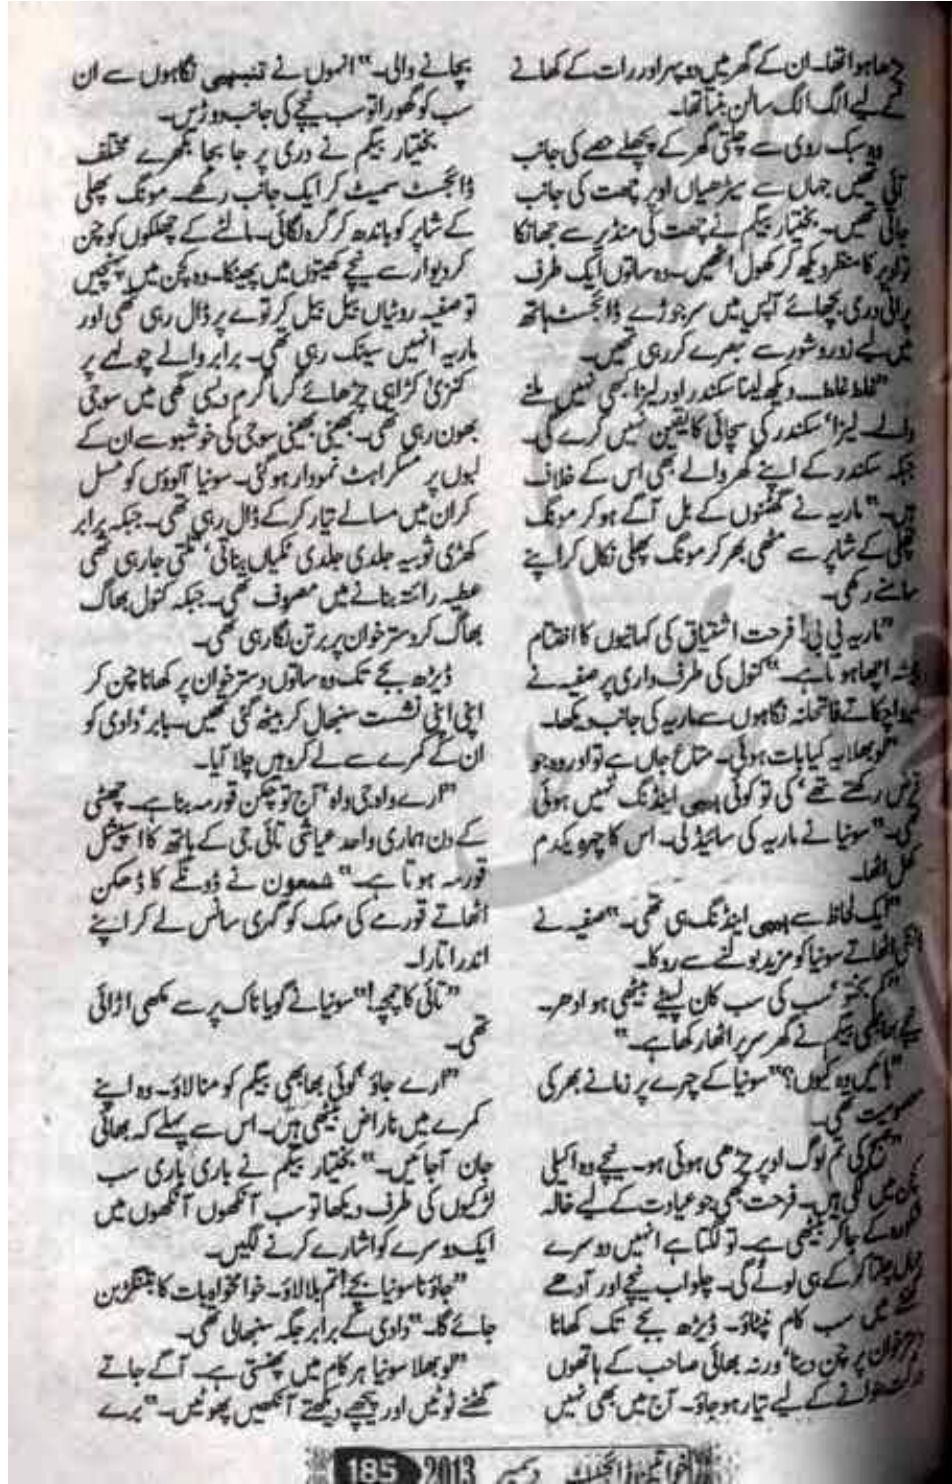 چڑھا ہوا تھا۔ ان کے گھر میں دوپہر اور رات کے کھانے
کے لیے الگ الگ سالن بنتا تھا۔
وہ سبک روی سے چلتی گھر کے پچھلے حصے کی جانب
آئی تھیں جہاں سے سیڑھیاں اوپر چھت کی جانب
جاتی تھیں۔ بختیار بیگم نے چھت کی منڈیر سے جھانکا
تو اوپر کا منظر دیکھ کر کھول اٹھیں۔ وہ ساتوں ایک طرف
پرانی دری بچھائے آپس میں سر جوڑے ڈائجسٹ ہاتھ
میں لیے زور و شور سے تبصرے کر رہی تھیں۔
”غلط غلط۔ دیکھ لینا سکندر اور لیزا بھی نہیں ملنے
والے۔ لیزا‘ سکندر کی سچائی کا یقین نہیں کرے گی۔
جبکہ سکندر کے اپنے گھر والے بھی اس کے خلاف
ہیں۔“ ماریہ نے گھٹنوں کے بل آگے ہو کر مونگ
پھلی کے شاپر سے مٹھی بھر کر مونگ پھلی نکال کر اپنے
سامنے رکھی۔
”ماریہ بی بی! فرحت اشتیاق کی کہانیوں کا اختتام
ہمیشہ اچھا ہوتا ہے۔“ کنول کی طرف داری پر صفیہ نے
اچکاتے فاتحانہ نگاہوں سے ماریہ کی جانب دیکھا۔
”لو بھلا یہ کیا بات ہوئی۔ متاع جاں ہے تو اور وہ جو
قرض رکھتے تھے‘ کی تو کوئی ہیپی اینڈنگ نہیں ہوئی
تھی۔“ سونیا نے ماریہ کی سائیڈ لی۔ اس کا چہرہ یکدم
کھل اٹھا۔
”ایک لحاظ سے ہیپی اینڈنگ ہی تھی۔“ صفیہ نے
انگلی اٹھاتے سونیا کو مزید بولنے سے روکا۔
”کم بختو‘ سب کی سب کان لپیٹے بیٹھی ہو ادھر۔
نیچے بھابھی بیگم نے گھر سر پر اٹھا رکھا ہے۔“
”ہائیں وہ کیوں؟“ سونیا کے چہرے پر زمانے بھر کی
معصومیت تھی۔
”صبح کی تم لوگ اوپر چڑھی ہوئی ہو۔ نیچے وہ اکیلی
کچن میں لگی ہیں۔ فرحت بھی جو عیادت کے لیے خالہ
کے جا کر بیٹھی ہے۔ تو لگتا ہے انہیں دوسرے
کر کے ہی لوٹے گی۔ چلو اب نیچے اور آدھے
گھنٹے میں سب کام نپٹاؤ۔ ڈیڑھ بجے تک کھانا
دسترخوان پر چن دینا‘ ورنہ بھائی صاحب کے ہاتھوں
کے لیے تیار ہو جاؤ۔ آج میں بھی نہیں
بچانے والی۔“ انہوں نے تنبیہی نگاہوں سے ان
سب کو گھورا تو سب نیچے کی جانب دوڑیں۔
بختیار بیگم نے دری پر جا بجا بکھرے مختلف
ڈائجسٹ سمیٹ کر ایک جانب رکھے۔ مونگ پھلی
کے شاپر کو باندھ کر گرہ لگائی۔ مالٹے کے چھلکوں کو چن
کر دیوار سے نیچے کھیتوں میں پھینکا۔ وہ کچن میں پہنچیں
تو صفیہ روٹیاں بیل بیل کر توے پر ڈال رہی تھی اور
ماریہ انہیں سینک رہی تھی۔ برابر والے چولہے پر
کنزیٰ کڑاہی چڑھائے گرما گرم دیسی گھی میں سوجی
بھون رہی تھی۔ بھینی بھینی سوجی کی خوشبو سے ان کے
لبوں پر مسکراہٹ نمودار ہو گئی۔ سونیا آلوؤں کو مسل
کر ان میں مسالے تیار کر کے ڈال رہی تھی۔ جبکہ برابر
کھڑی ثوبیہ جلدی جلدی ٹکیاں بناتی‘ تلتی جا رہی تھی
عطیہ رائتہ بنانے میں مصروف تھی۔ جبکہ کنول بھاگ
بھاگ کر دسترخوان پر برتن لگا رہی تھی۔
ڈیڑھ بجے تک وہ ساتوں دسترخوان پر کھانا چن کر
اپنی اپنی نشست سنبھال کر بیٹھ گئی تھیں۔ بابر‘ دادی کو
ان کے کمرے سے لے کر وہیں چلا آیا۔
”ارے واہ جی واہ‘ آج تو چکن قورمہ بنا ہے۔ چھٹی
کے دن ہماری واحد عیاشی تائی جی کے ہاتھ کا اسپیشل
قورمہ ہوتا ہے۔“ شمعون نے ڈونگے کا ڈھکن
اٹھاتے قورمے کی مہک کو گہری سانس لے کر اپنے
اندر اتارا۔
”تائی کا چمچہ!“ سونیا نے گویا ناک پر سے مکھی اڑائی
تھی۔
”ارے جاؤ‘ کوئی بھابھی بیگم کو منا لاؤ۔ وہ اپنے
کمرے میں ناراض بیٹھی ہیں۔ اس سے پہلے کہ بھائی
جان آ جائیں۔“ بختیار بیگم نے باری باری سب
لڑکیوں کی طرف دیکھا تو سب آنکھوں آنکھوں میں
ایک دوسرے کو اشارے کرنے لگیں۔
”جاؤ نا سونیا بچے! تم بلا لاؤ۔ خوامخواہ بات کا بتنگڑ بن
جائے گا۔“ دادی کے برابر جگہ سنبھالی تھی۔
”لو بھلا سونیا ہر کام میں پھنستی ہے۔ آگے جاتے
گھٹنے ٹوٹیں اور پیچھے دیکھتے آنکھیں پھوٹیں۔“ برے
خواتین ڈائجسٹ دسمبر 2013 185